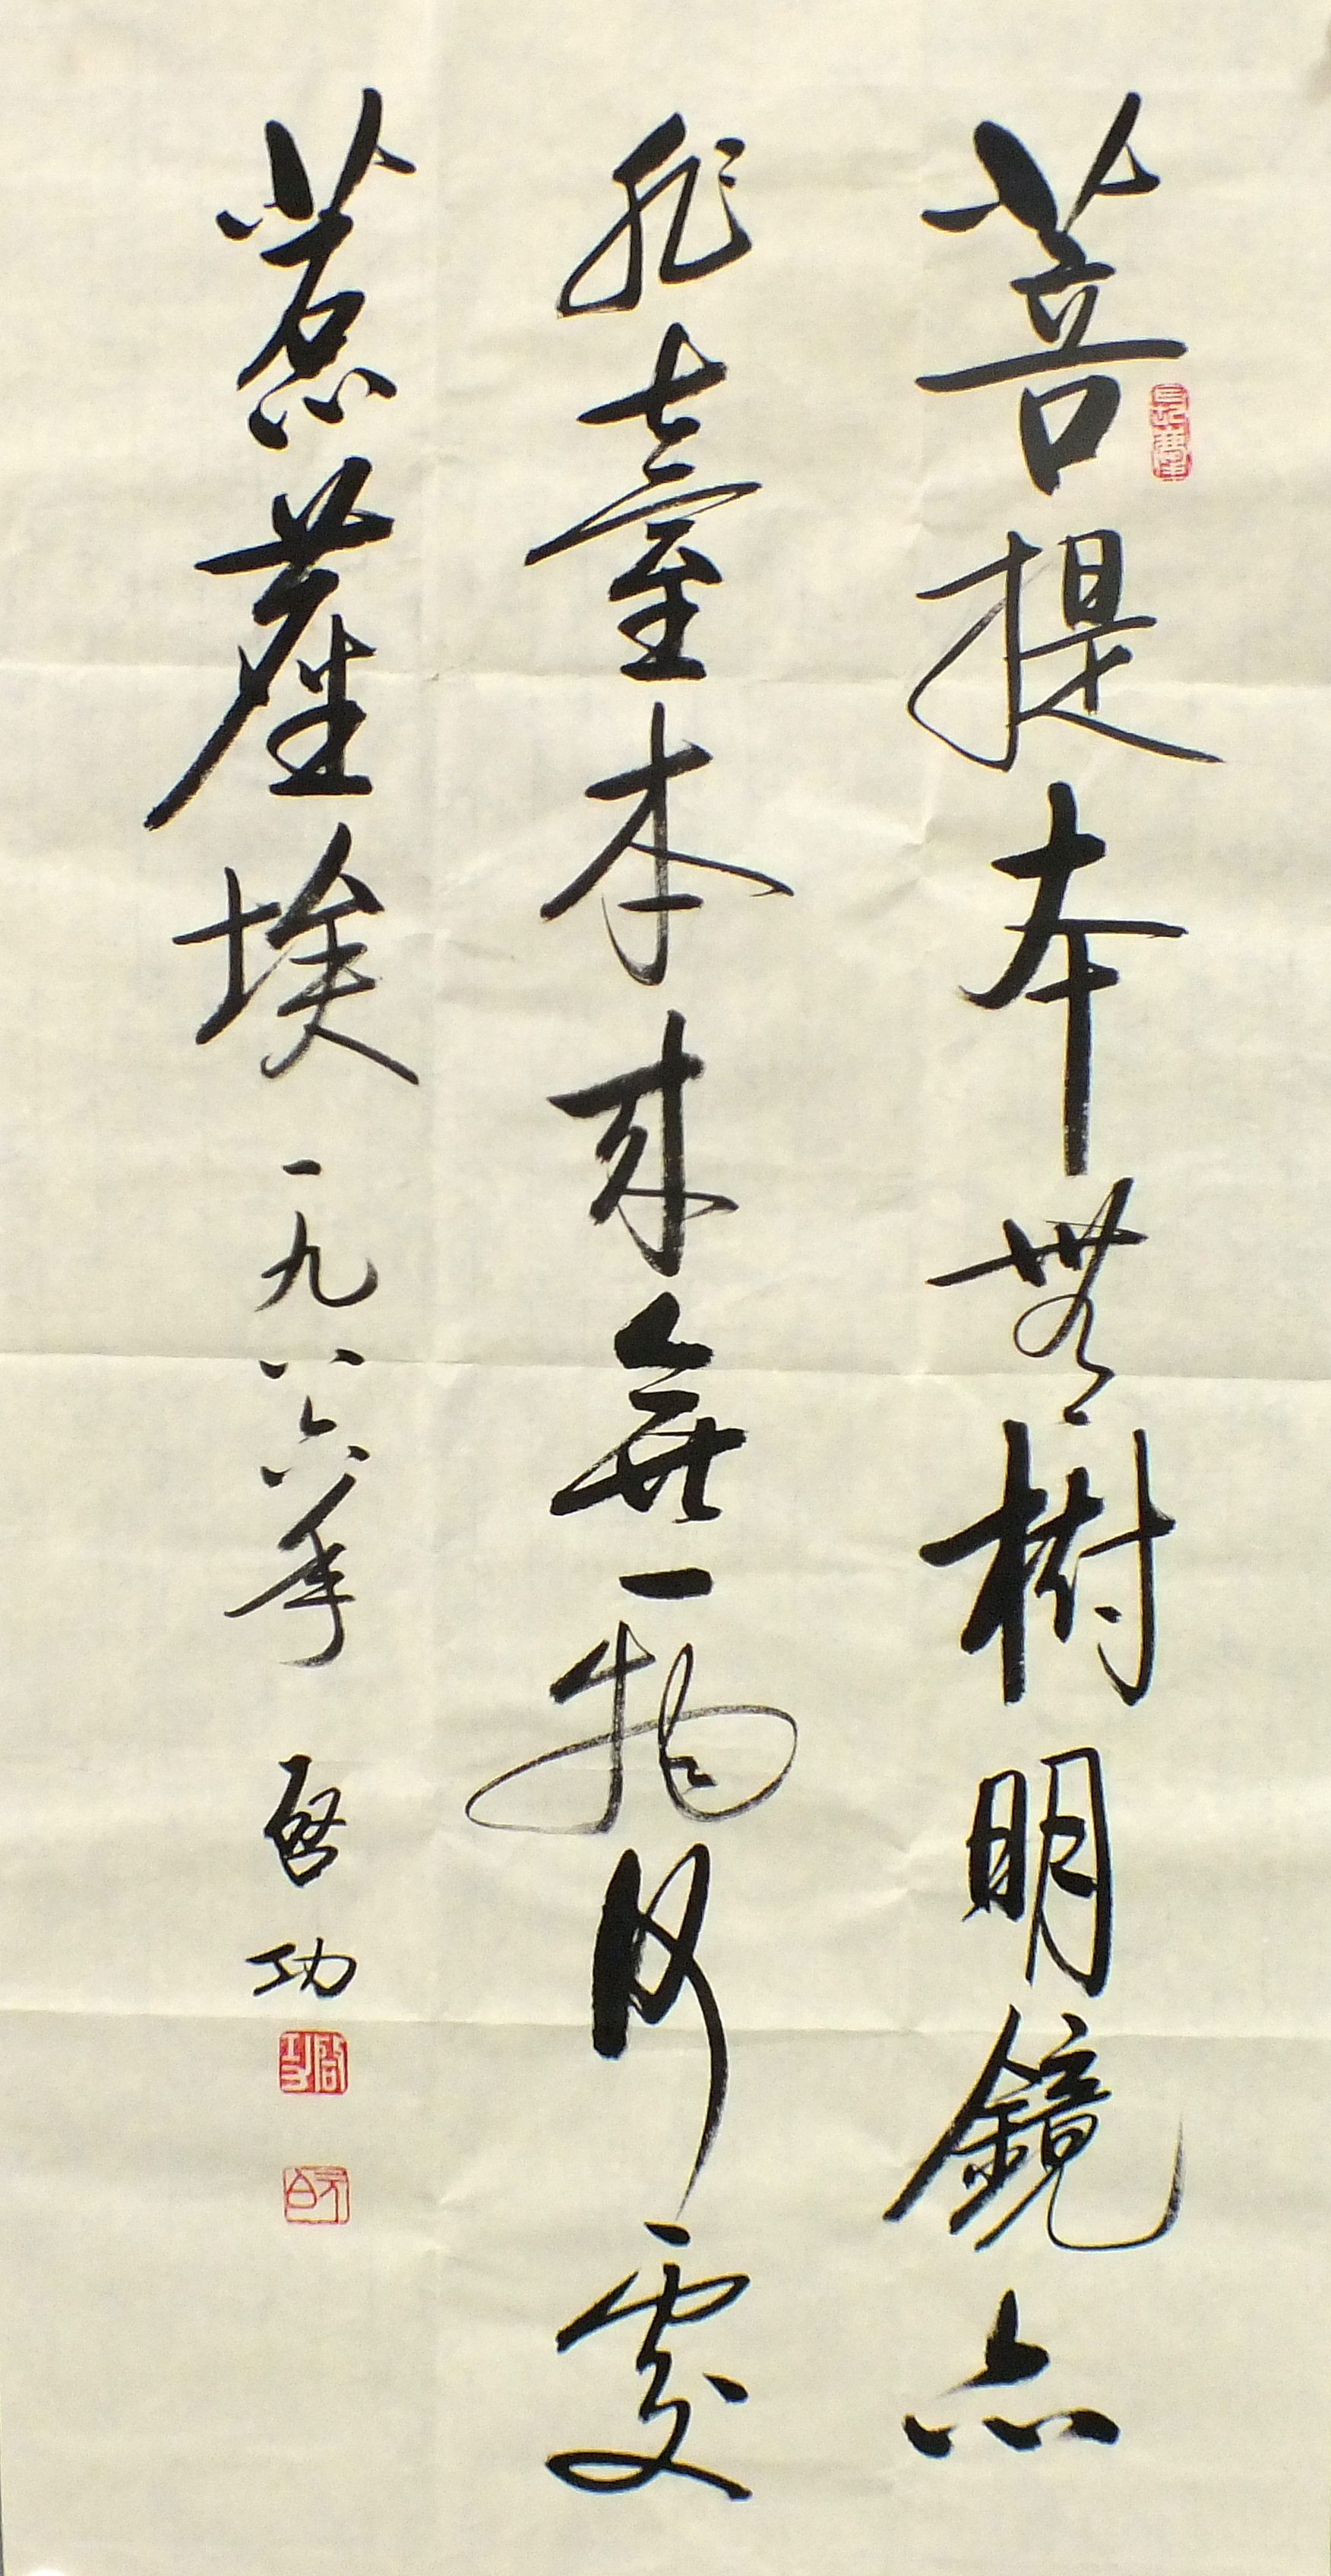 菩提本無樹明鏡亦
非臺本來無一物何處
惹塵埃 一九八六年 啓功
啓功
元白